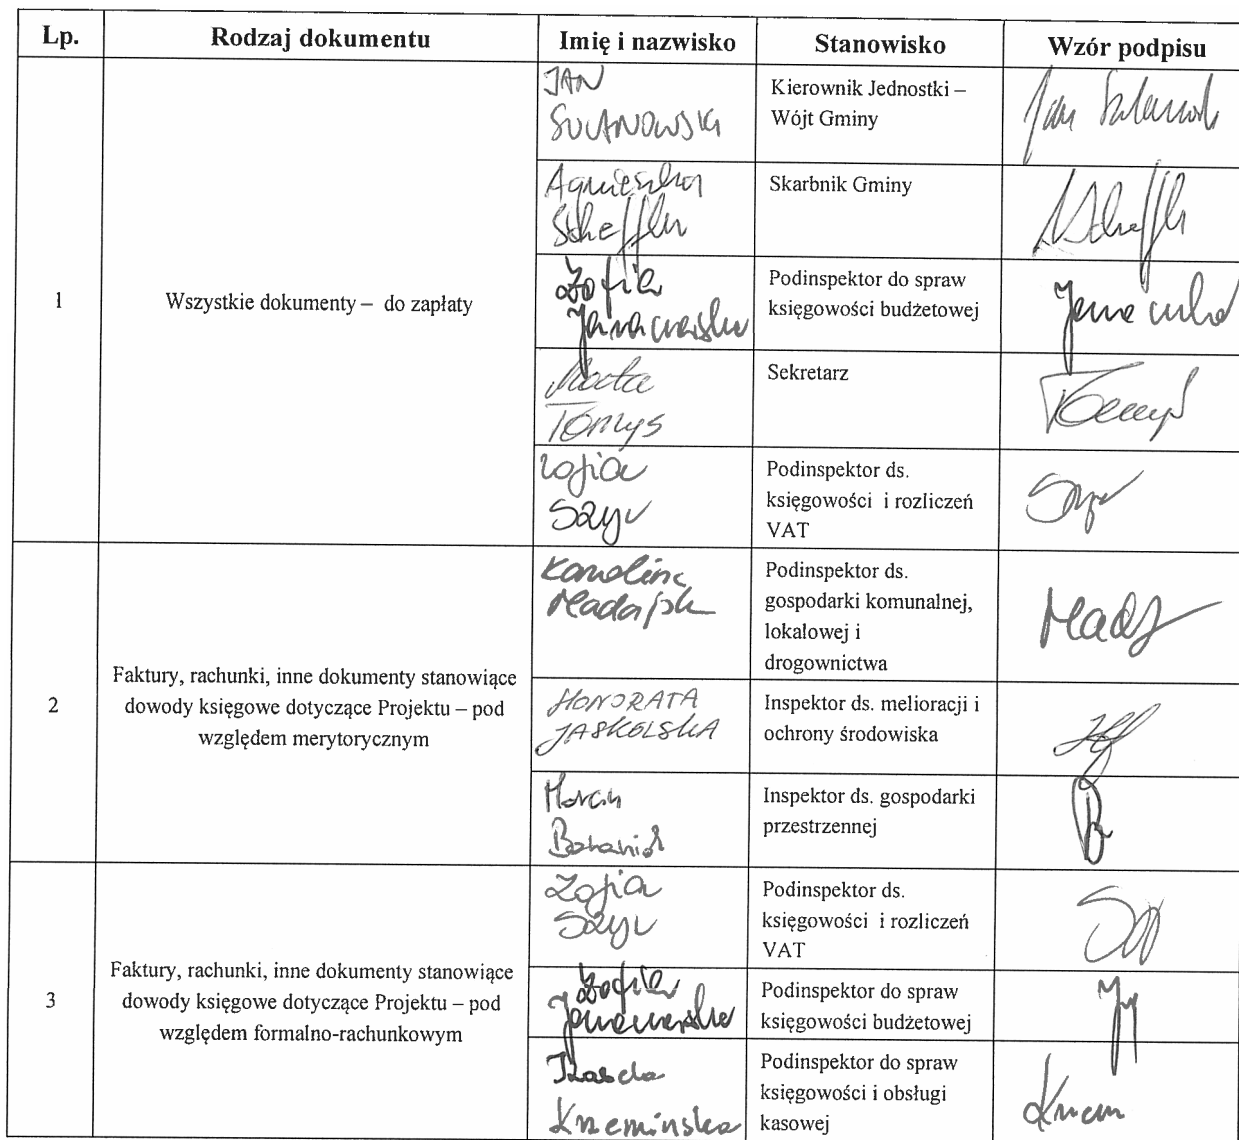 Lp. Rodzaj dokumentu Imię i nazwisko Stanowisko Wzór podpisu
1
Wszystkie dokumenty – do zapłaty
JAN
Kierownik Jednostki –
Wójt Gminy
Jan
Agnieszka
Scheffler
Skarbnik Gminy
Zofia
Podinspektor do spraw
księgowości budżetowej
Tomys
Sekretarz
Zofia
Szyc
Podinspektor ds.
księgowości i rozliczeń
VAT
2
Faktury, rachunki, inne dokumenty stanowiące
dowody księgowe dotyczące Projektu – pod
względem merytorycznym
Karolina
Podinspektor ds.
gospodarki komunalnej,
lokalowej i
drogownictwa
HONORATA
JASKOLSKA
Inspektor ds. melioracji i
ochrony środowiska
Marcin
Inspektor ds. gospodarki
przestrzennej
3
Faktury, rachunki, inne dokumenty stanowiące
dowody księgowe dotyczące Projektu – pod
względem formalno-rachunkowym
Zofia
Szyc
Podinspektor ds.
księgowości i rozliczeń
VAT
Zofia
Podinspektor do spraw
księgowości budżetowej
Krzemińska
Podinspektor do spraw
księgowości i obsługi
kasowej